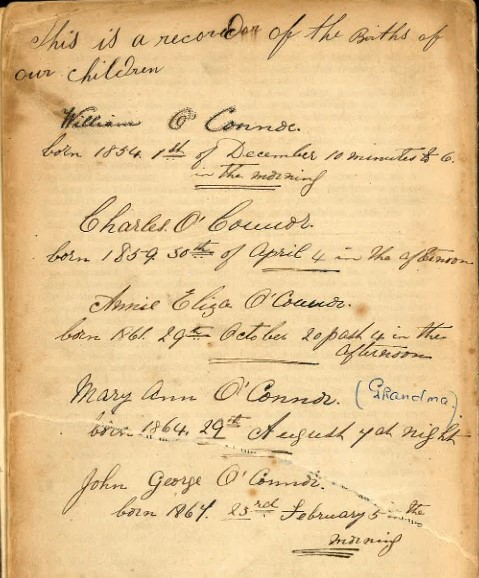 This is a recorder of the Births of
our children
William O'Connor.
born 1854. 1st of December 10 minutes to 6.
in the morning
Charles. O'Connor.
born 1859. 30th of April 4 in the afternoon
Annie Eliza O'Connor.
born 1861. 29th October 20 past 4 in the
afternoon
Mary Ann O'Connor. (Grandma)
born 1864. 29th August 7 at night
John George O'Connor.
born 1867. 23rd February 5 in the
morning